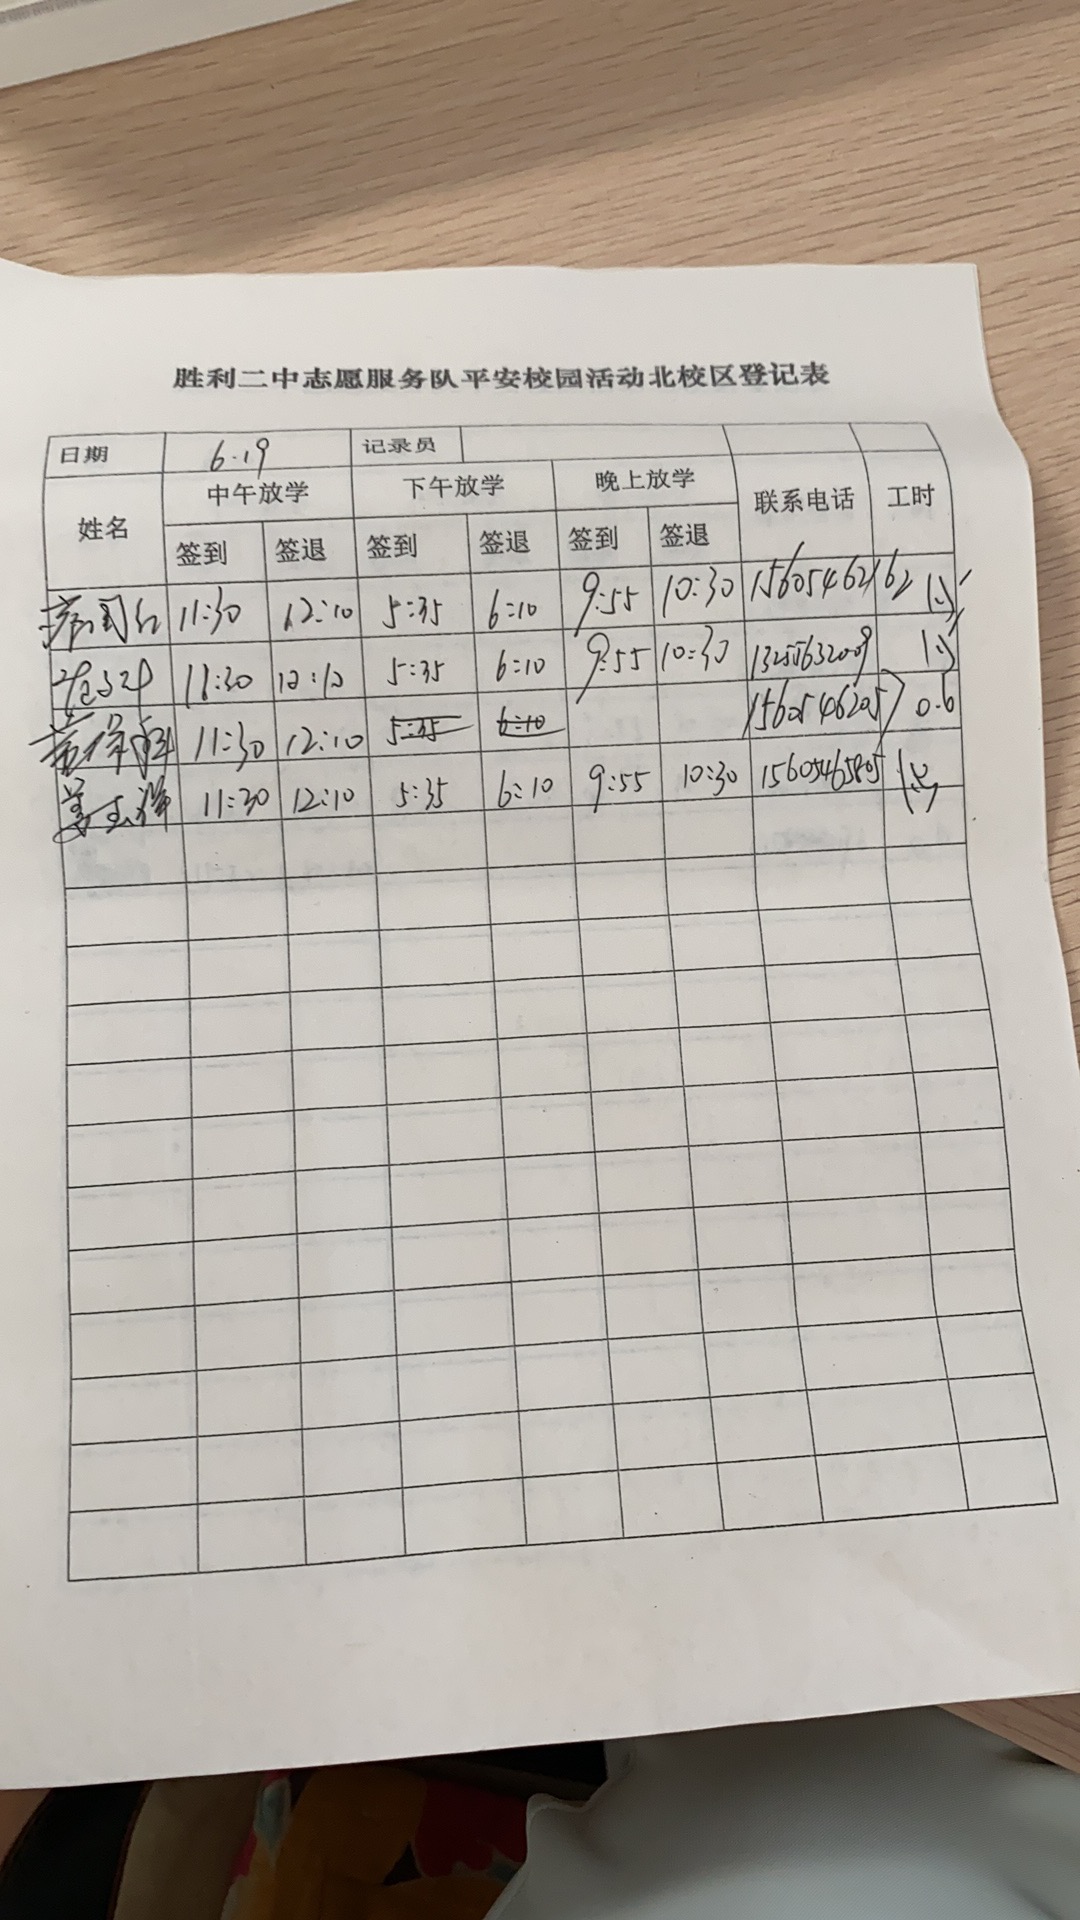 胜利二中志愿服务队平安校园活动北校区登记表
日期 6.19 记录员
姓名 中午放学 下午放学 晚上放学 联系电话 工时
签到 签退 签到 签退 签到 签退
11:30 12:10 5:35 6:10 9:55 10:30 15605462162
11:30 12:10 5:35 6:10 9:55 10:30 13255632009
11:30 12:10 5:35 6:10 15605462057 0.6
11:30 12:10 5:35 6:10 9:55 10:30 15605465805